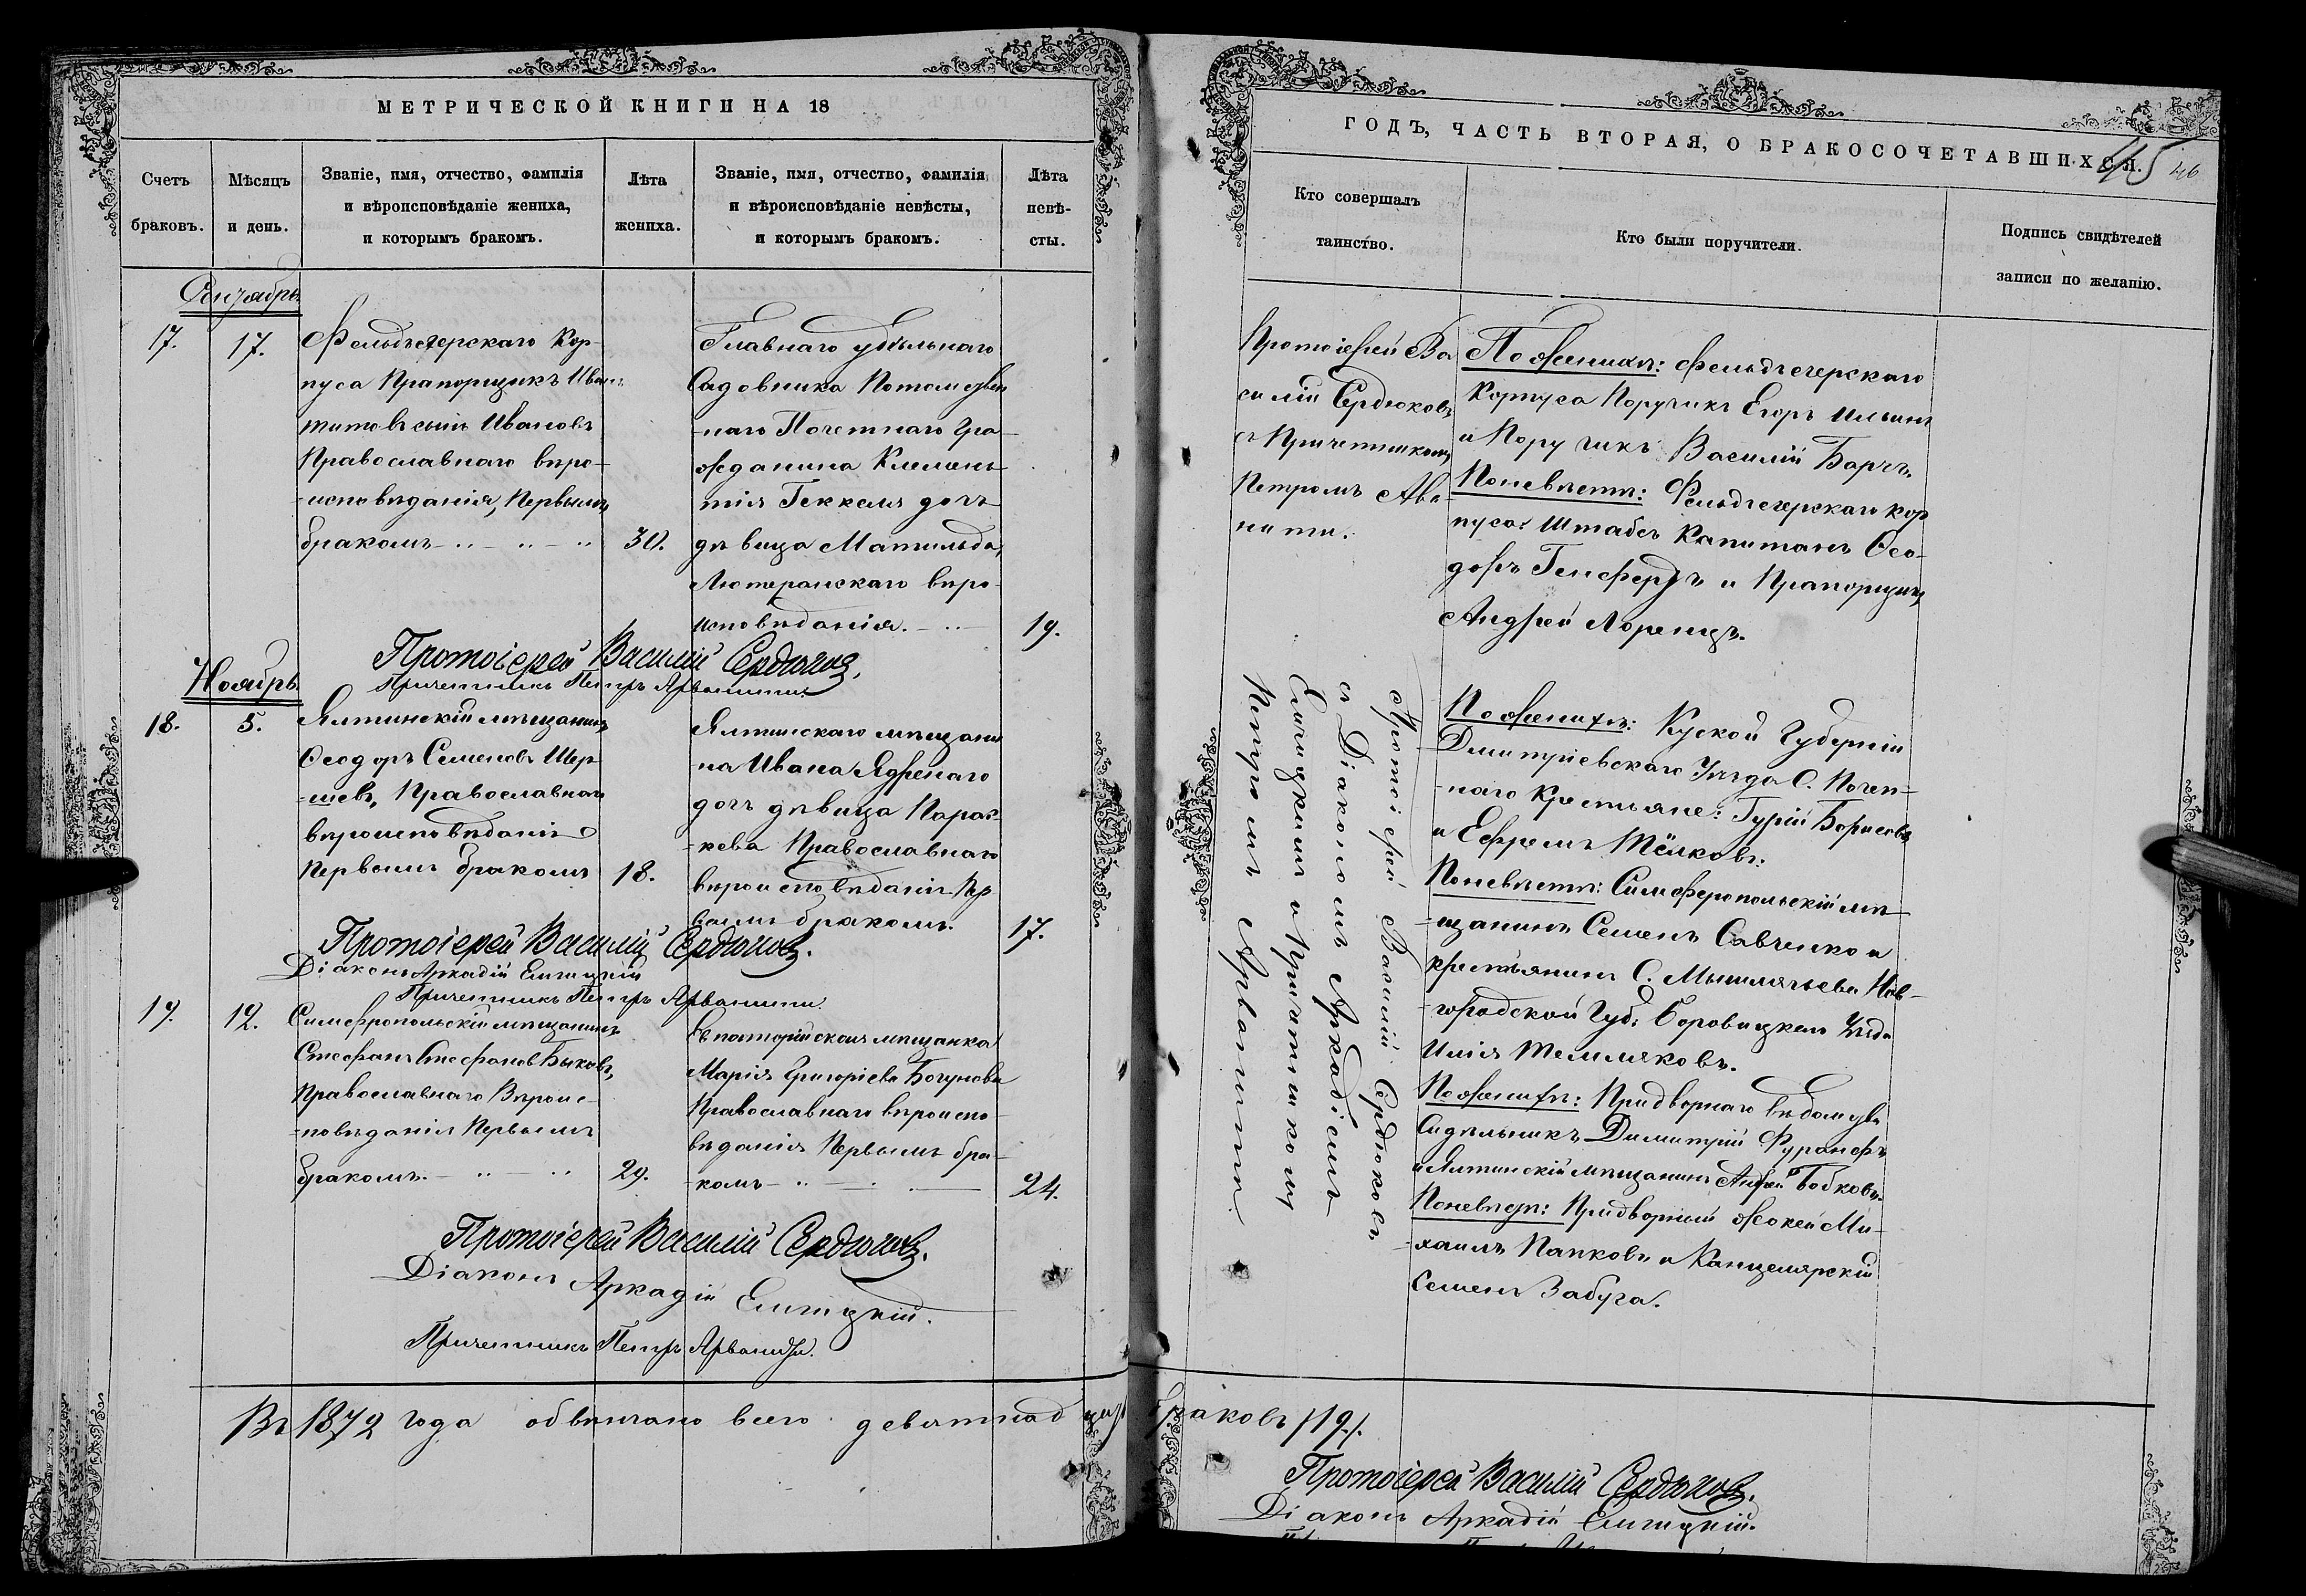 МЕТРИЧЕСКОЙ КНИГИ НА 18
Счетъ
браковъ.
Мѣсяцъ
и день.
Званіе, имя, отчество, фамилія
и вѣроисповѣданіе жениха,
и которымъ бракомъ.
Лѣта
жениха.
Званіе, имя, отчество, фамилія
и вѣроисповѣданіе невѣсты,
и которымъ бракомъ.
Лѣта
невѣ-
сты.
Сентябрь
17.
17.
Фельдъегерскаго Кор-
пуса Прапорщикъ Иванъ
сынъ Ивановъ
Православнаго вѣро-
-исповѣданія, Первымъ
бракомъ
30.
Главнаго удѣльнаго
Садовника Потомствен
-наго Почетнаго Гра-
жданина Клемен-
тія Геккеля дочь
дѣвица Матильда,
Лютеранскаго вѣро-
исповѣданія.
19.
Протоіерей Василій Сердюковъ.
Причетникъ Петръ Арванити
Ноябрь
18.
5.
Ялтинскій мѣщанинъ
Ѳеодоръ Семеновъ Шер-
-шевъ, Православнаго
вѣроисповѣданія
Первымъ бракомъ
18.
Ялтинскаго мѣщани
на Ивана Ядренаго
дочь дѣвица Парас-
-кева Православнаго
вѣроисповѣданія Пер
вымъ бракомъ.
17.
Протоіерей Василій Сердюковъ.
Діаконъ Аркадій
Причетникъ Петръ Арванити
19.
12.
Симферопольскій мѣщанинъ
Стефанъ Стефановъ Быковъ,
Православнаго Вѣроис-
-повѣданія Первымъ
бракомъ.
29.
Евпаторійская мѣщанка
Марія Григоріева Богунова
Православнаго вѣроиспо-
вѣданія Первымъ бра-
-комъ
24.
Протоіерей Василій Сердюковъ.
Діаконъ Аркадій
Причетникъ Петръ Арванити.
Въ 1872 года обвѣнчано всего девятнадцать браковъ /19/.
ГОДЪ, ЧАСТЬ ВТОРАЯ, О БРАКОСОЧЕТАВШИХСЯ.
45 46
Кто совершалъ
таинство.
Кто были поручители.
Подпись свидѣтелей
записи по желанію.
Протоіерей Ва
силій Сердюковъ
съ Причетникомъ
Петромъ Арва-
нити.
По женихѣ: Фельдъегерскаго
Корпуса Поручикъ Егоръ Ильинъ
и Поручикъ Василій Барчъ,
По невѣстѣ: Фельдъегерскаго кор
пуса: Штабсъ Капитанъ Ѳео-
доръ и Прапорщикъ
Андрей Лоренцъ.
Протоіерей Василій Сердюковъ
съ Діакономъ Аркадіемъ
и Причетникомъ
Петромъ Арванити
По женихѣ: Куской Губерніи
Дмитріевскаго Уѣзда С. Почеп-
-наго Крестьяне: Гурій Борисовъ
и Ефремъ Тёлковъ:
По невѣстѣ: Симферопольскій мѣ-
-щанинъ Семенъ Савченко и
крестьянинъ С. Мышлячьева Нов-
-городской Губ: Боровицкаго Уѣзда
Илія Темляковъ.
По женихѣ: Придворнаго вѣдомства
Димитрій
и Ялтинскій мѣщанинъ Андрей Бобковъ.
По невѣстѣ: Придворный жокей Ми-
-хаилъ Папковъ и Канцелярскій
Семенъ Забуга.
Протоіерей Василій Сердюковъ.
Діаконъ Аркадій